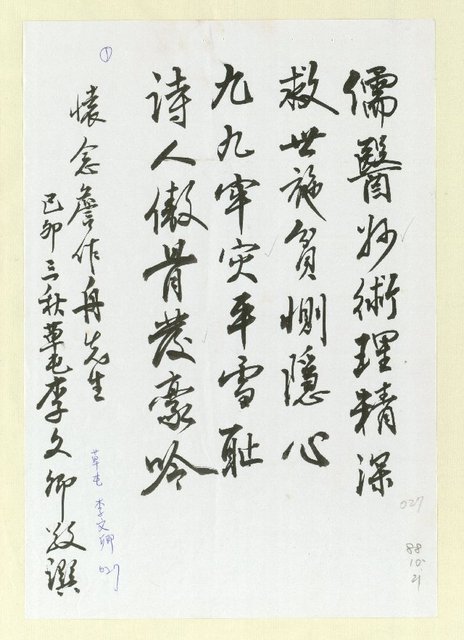 儒醫妙術理精深
救世施貧惻隱心
九九牢災平雪耻
詩人傲骨發豪吟
懷念詹作舟先生
己卯三秋草屯李文卿敬撰
①
草屯 李文卿 027
027
88
10.
21